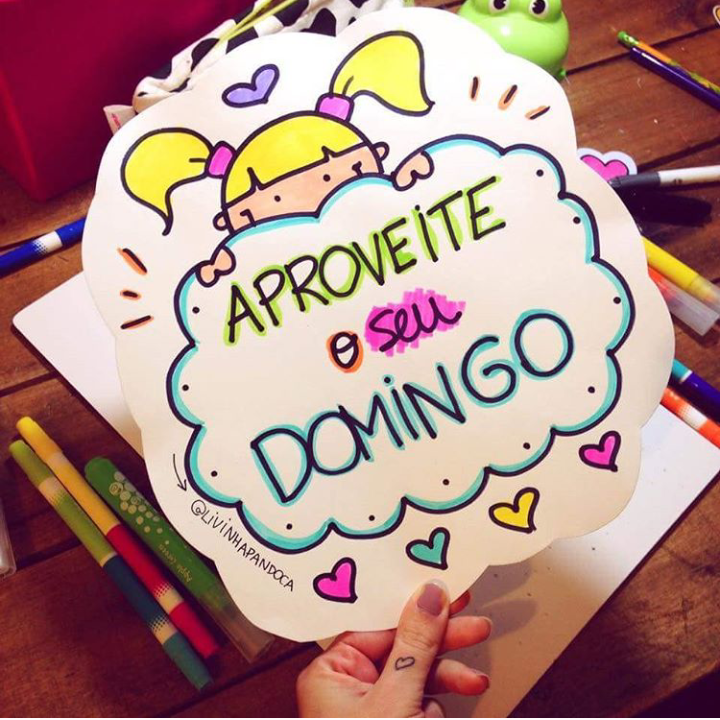 APROVEITE
o seu
DOMINGO
@LIVINHAPANDOCA